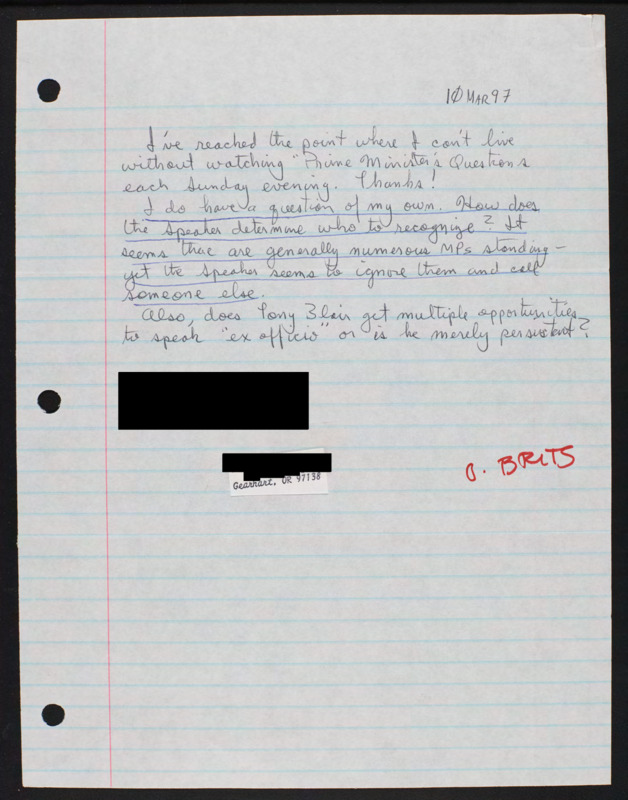 10 MAR 97
I've reached the point where I can't live
without watching "Prime Minister's Questions
each Sunday evening. Thanks!
I do have a question of my own. How does
the Speaker determine who to recognize? It
seems there are generally numerous MPs standing —
yet the Speaker seems to ignore them and call
someone else.
Also, does Tony Blair get multiple opportunities
to speak "ex officio" or is he merely persistent?
Gearhart, OR 97138
BRITS